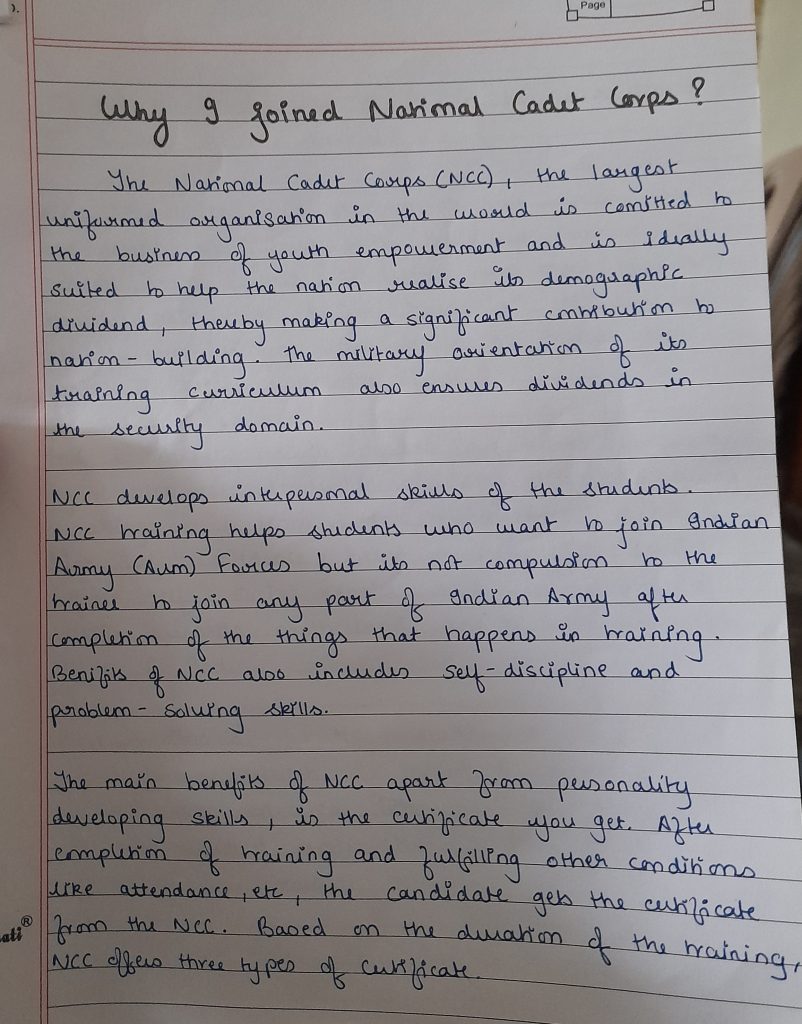 Page
Why I Joined National Cadet Corps?
The National Cadet Corps (NCC), the largest
uniformed organisation in the world is comitted to
the business of youth empowerment and is ideally
suited to help the nation realise its demographic
dividend, thereby making a significant contribution to
nation-building. The military orientation of its
training curriculum also ensures dividends in
the security domain.
NCC develops interpersonal skills of the students.
NCC training helps students who want to join Indian
Army (Aum) Forces but its not compulsion to the
trainee to join any part of Indian Army after
completion of the things that happens in training.
Benifits of NCC also includes self-discipline and
problem-solving skills.
The main benefits of NCC apart from personality
developing skills, is the certificate you get. After
completion of training and fulfilling other conditions
like attendance, etc, the candidate gets the certificate
from the NCC. Based on the duration of the training,
NCC offers three types of certificate.
ati®